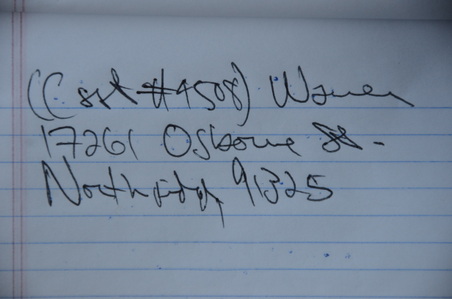 (Cust #4508) Warren
17261 Osborne St.
Northridge 91325